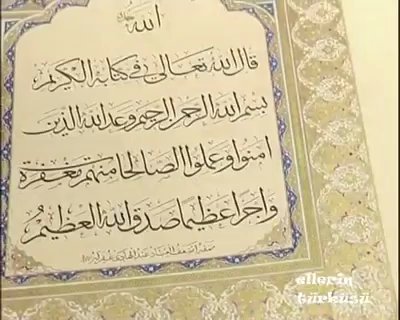 الله
جل جلاله
قال الله تعالى في كتابه الكريم
بسم الله الرحمن الرحيم وعد الله الذين
امنوا وعملوا الصالحات منهم مغفرة
واجرا عظيما صدق الله العظيم
ellerin
türküsü